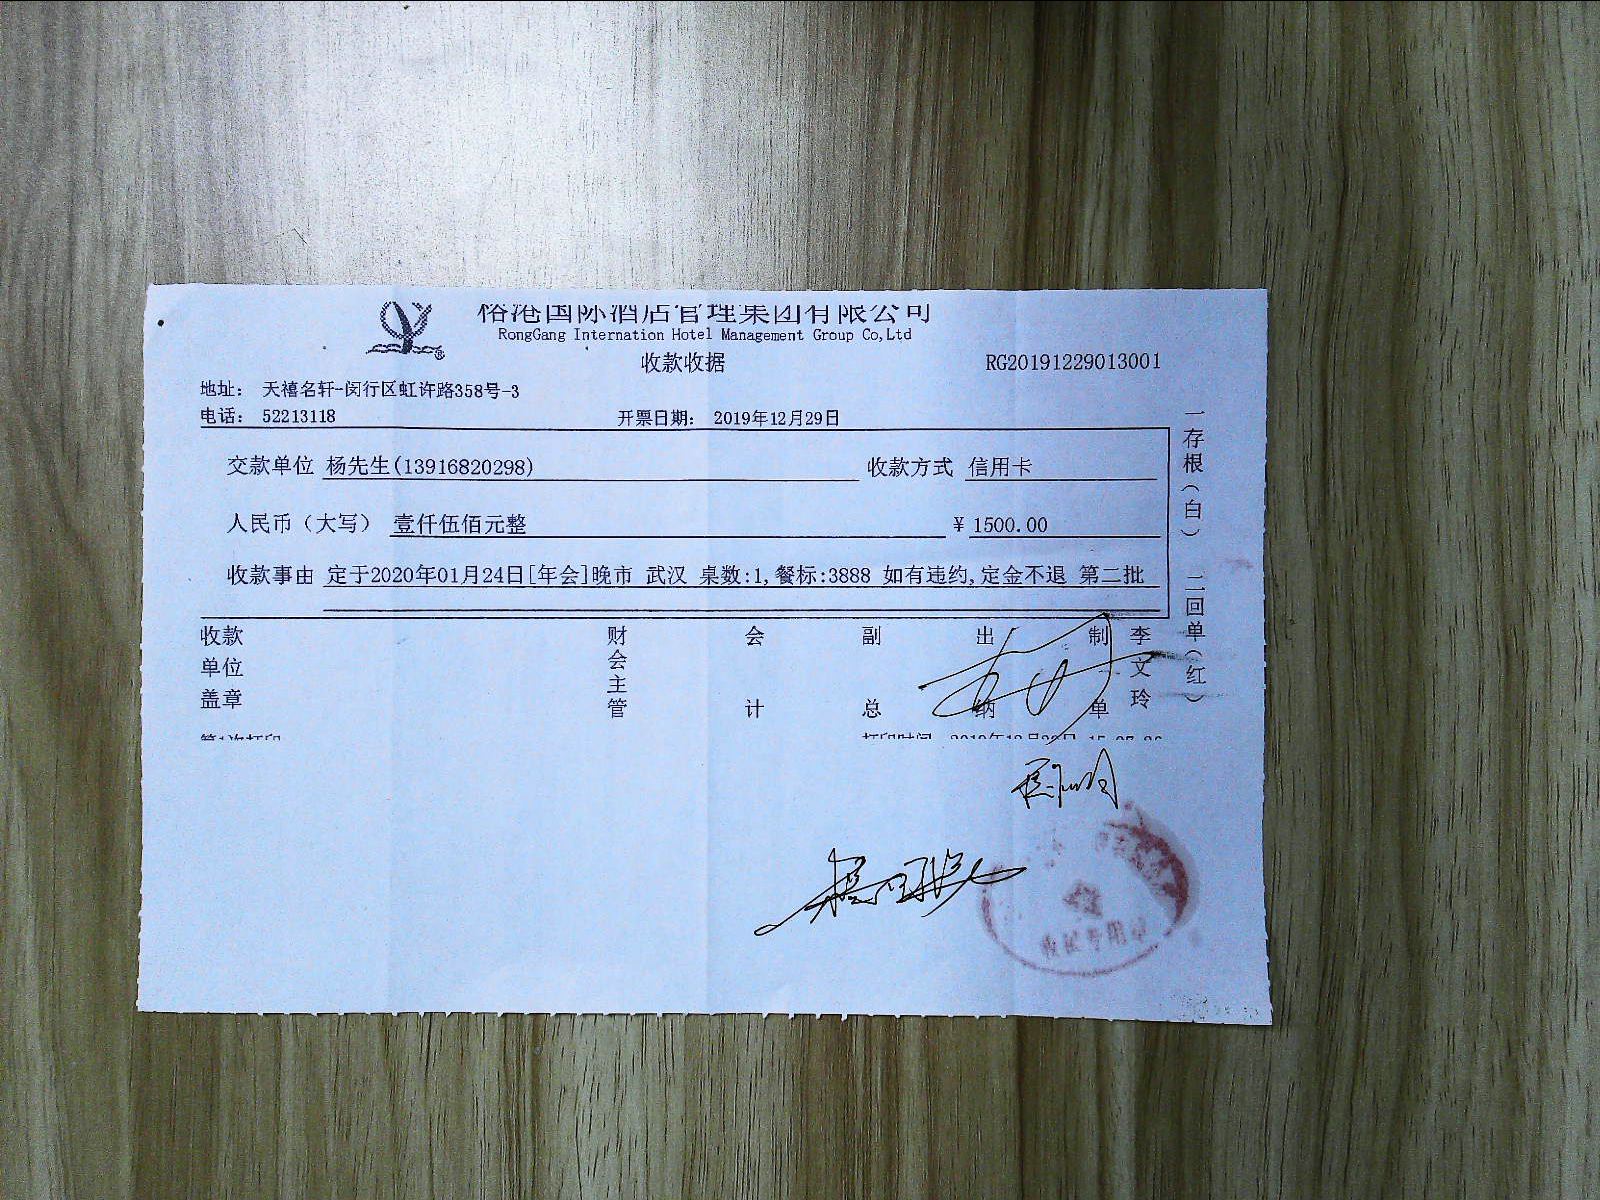 榕港国际酒店管理集团有限公司
RongGang Internation Hotel Management Group Co,Ltd
收款收据 RG20191229013001
地址： 天禧名轩-闵行区虹许路358号-3
电话： 52213118 开票日期： 2019年12月29日
交款单位 杨先生(13916820298) 收款方式 信用卡
人民币（大写） 壹仟伍佰元整 ￥1500.00
收款事由 定于2020年01月24日[年会]晚市 武汉 桌数:1,餐标:3888 如有违约,定金不退 第二批
收款单位盖章 财会主管 会计 副总 出纳 制单 李文玲
一存根（白） 二回单（红）
第1次打印 打印时间
专用章